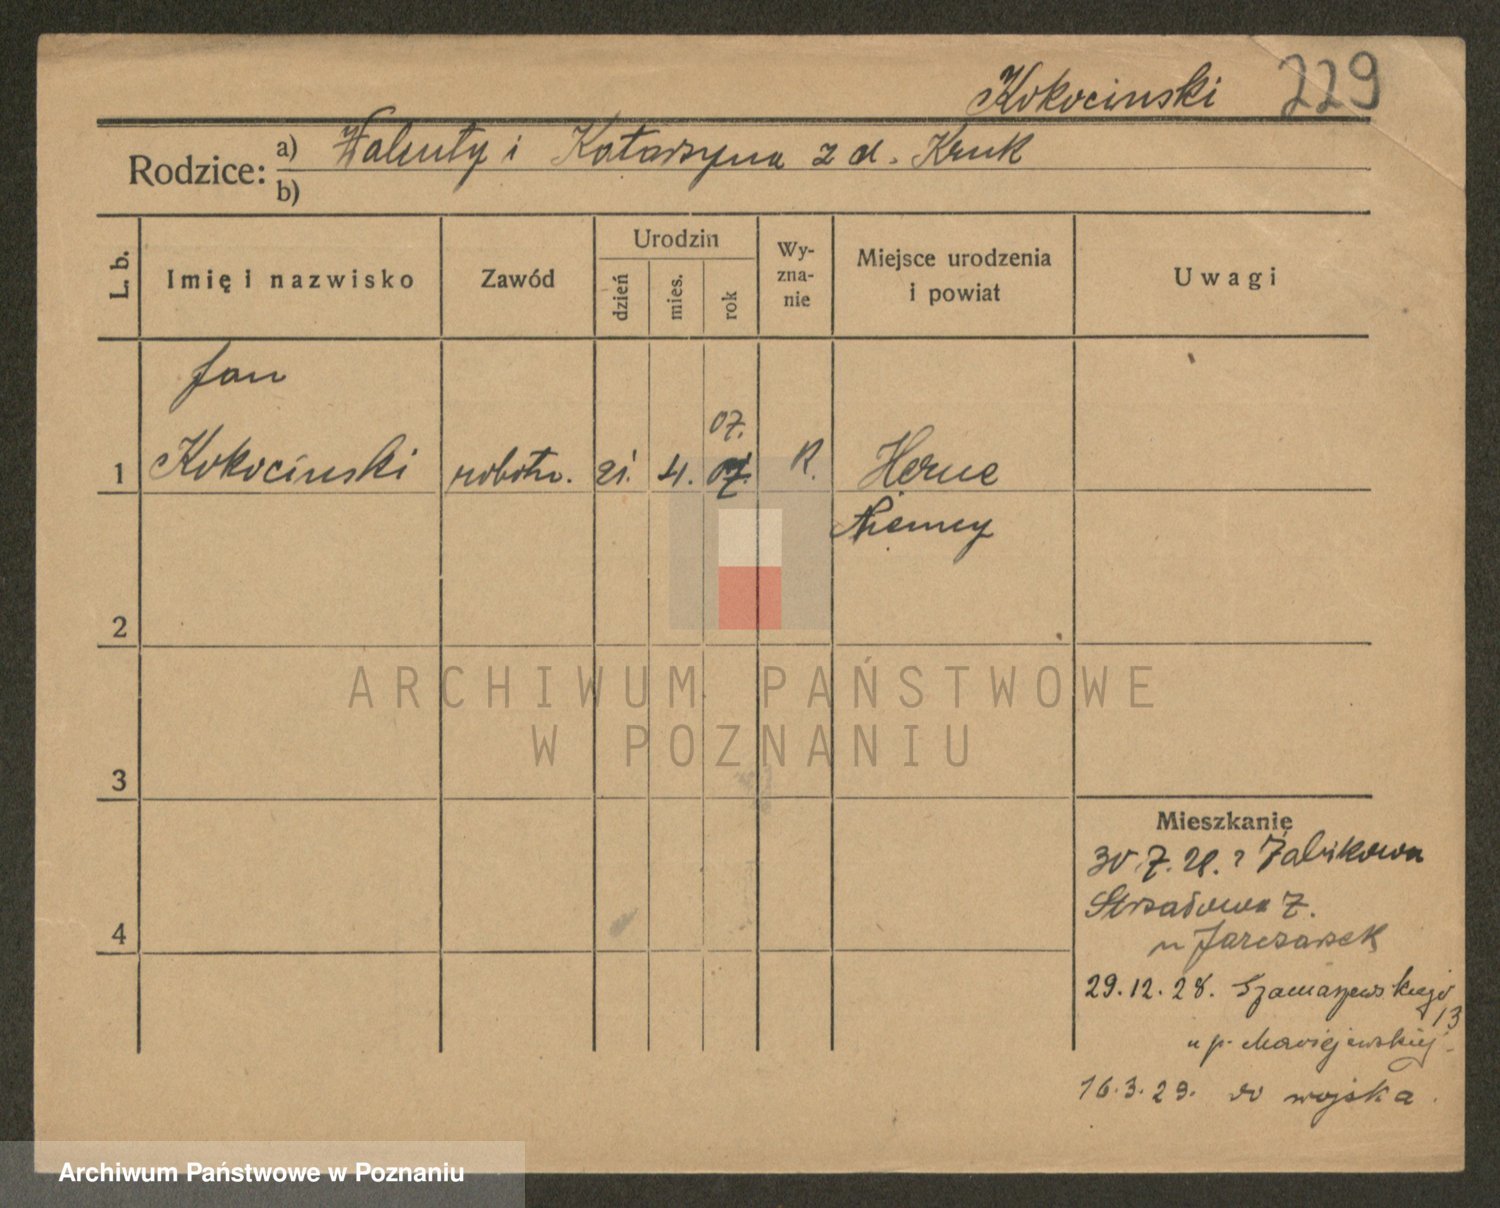 Kokocinski 229
Rodzice: a) Walenty i Katarzyna z d. Kruk
b)
L. b.
Imię i nazwisko
Zawód
Urodzin
dzień
mies.
rok
Wy-
zna-
nie
Miejsce urodzenia
i powiat
Uwagi
Jan
07.
1 Kokocinski robotn. 21. 4. 07. R. Herne
Niemcy
2
ARCHIWUM PAŃSTWOWE
W POZNANIU
3
4
Mieszkanie
30.7.28. z Żabikowa
Strzałowa 7.
u
29.12.28. Szamarzewskiego
13
u p. Maciejewskiej
16.3.29. do wojska.
Archiwum Państwowe w Poznaniu